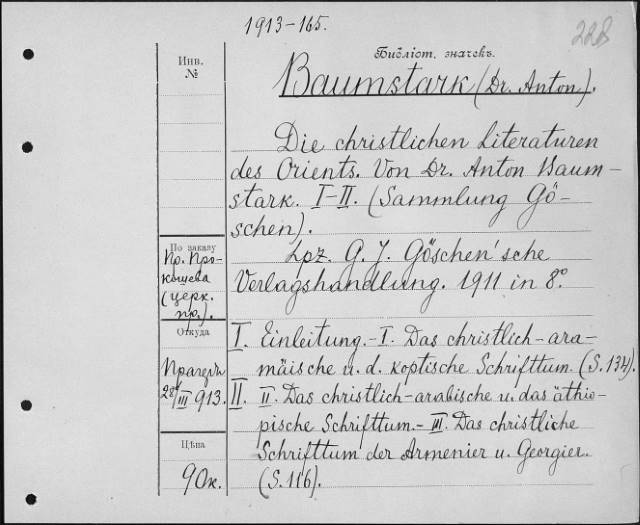 1913-165.
228
Инв.
№
Библіот. значекъ.
Baumstark (Dr. Anton).
Die christlichen Literaturen
des Orients. Von Dr. Anton Baum-
stark. I-II. (Sammlung Gö-
schen).
Lpz. G. J. Göschen'sche
Verlagshandlung. 1911 in 8º
По заказу
Пр. Про-
кошева
(церк.
пр.).
Откуда
Прагеръ
28/III 913.
Цѣна
90к.
I. Einleitung.-I. Das christlich-ara-
mäische u. d. koptische Schrifttum. (S. 134).
II. II. Das christlich-arabische u. das äthio-
pische Schrifttum.-III. Das christliche
Schrifttum der Armenier u. Georgier.
(S. 116).